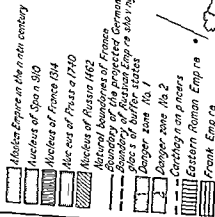 Moslem Empire in the ninth century
Nucleus of Spain 910
Nucleus of France 1314
Nucleus of Prussia 1740
Nucleus of Russia 1462
Natural boundaries of France
Boundary of the projected German
Boundary of Russian Empire showing
glacis of buffer states
Danger zone No. 1
Danger zone No. 2
Carthaginian pincers
Eastern Roman Empire
Frank Empire